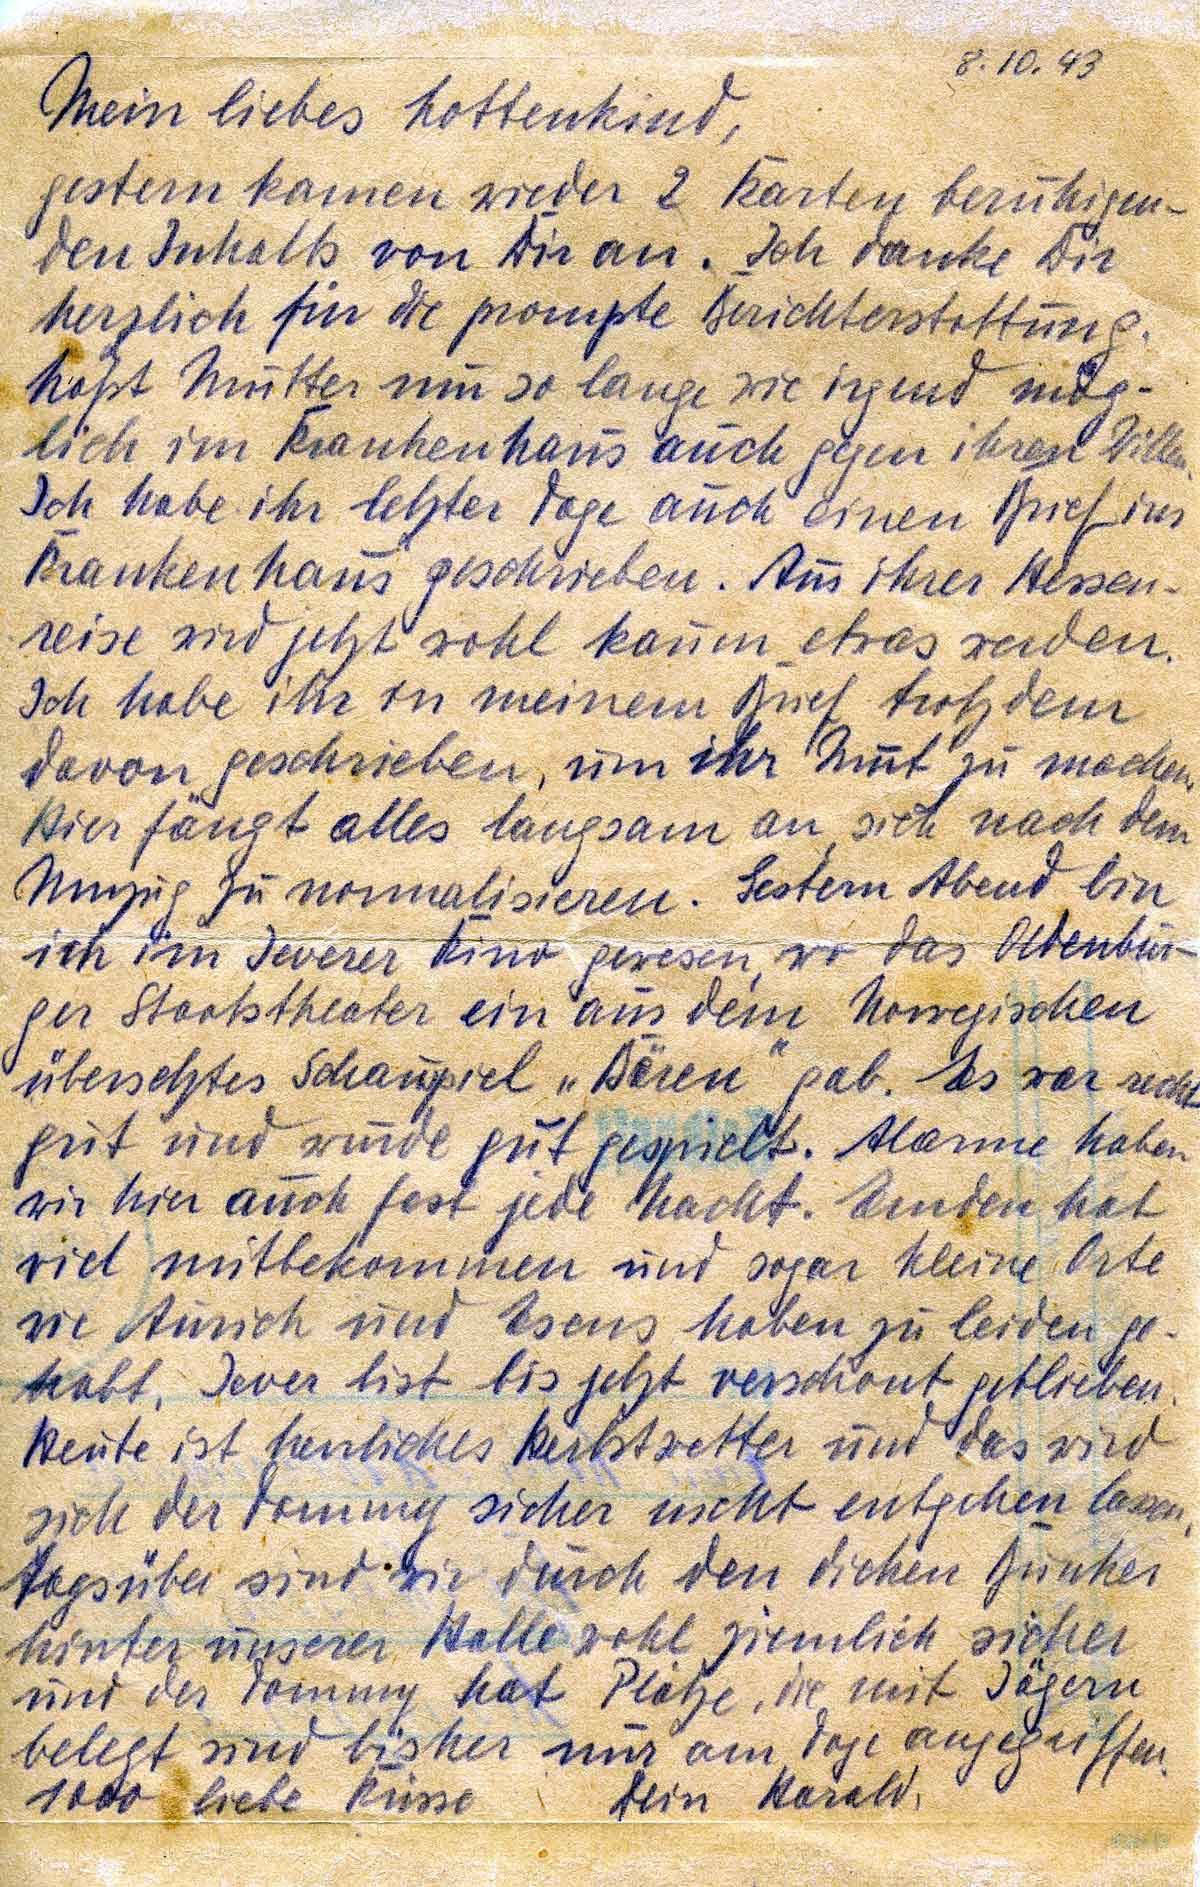 8.10.43
Mein liebes Lottenkind,
gestern kamen wieder 2 Karten beruhigen-
den Inhalts von Dir an. Ich danke Dir
herzlich für die prompte Berichterstattung.
Laßt Mutter nur so lange wie irgend mög-
lich im Krankenhaus auch gegen ihren Willen.
Ich habe ihr letzter Tage auch einen Brief ins
Krankenhaus geschrieben. Aus ihrer Hessen-
reise wird jetzt wohl kaum etwas werden.
Ich habe ihr in meinem Brief trotzdem
davon geschrieben, um ihr Mut zu machen.
Hier fängt alles langsam an, sich nach dem
Umzug zu normalisieren. Gestern Abend bin
ich im Jeverer Kino gewesen, wo das Oldenbur-
ger Staatstheater ein aus dem Norwegischen
übersetztes Schauspiel „Bären" gab. Es war recht
gut und wurde gut gespielt. Alarme haben
wir hier auch fast jede Nacht. Emden hat
viel mitbekommen und sogar kleine Orte
wie Aurich und Esens haben zu leiden ge-
habt. Jever ist bis jetzt verschont geblieben.
Heute ist herrliches Herbstwetter und das wird
sich der Tommy sicher nicht entgehen lassen.
Tagsüber sind wir durch den dicken Bunker
hinter unserer Halle wohl ziemlich sicher
und der Tommy hat Plätze, die mit Jägern
belegt sind bisher nur am Tage angegriffen.
1000 liebe Küsse Dein Harald.